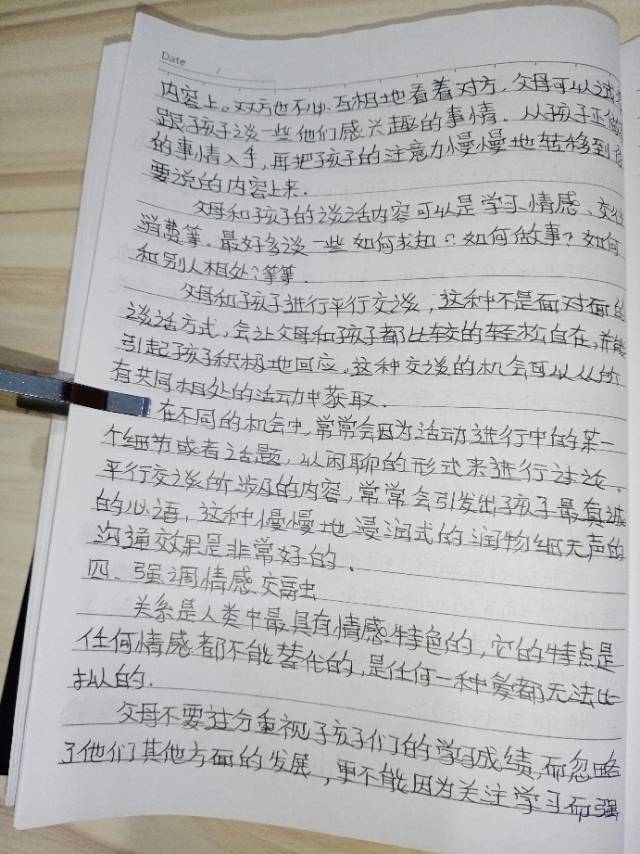 Date
内容上。双方也不必互相地看着对方，父母可以试着
跟孩子谈一些他们感兴趣的事情．从孩子正做
的事情入手，再把孩子的注意力慢慢地转移到
要说的内容上来．
父母和孩子的谈话内容可以是学习、情感、交往
消费等．最好多谈一些如何求知？如何做事？如何
和别人相处？等等．
父母和孩子进行平行交谈，这种不是面对面的
谈话方式，会让父母和孩子都比较的轻松自在，并能
引起孩子积极地回应．这种交谈的机会可以从所
有共同相处的活动中获取．
在不同的机会中，常常会因为活动进行中的某一
个细节或者话题，以闲聊的形式来进行讨论．
平行交谈所涉及的内容，常常会引发出孩子最真诚
的心语，这种慢慢地浸润式的润物细无声的
沟通效果是非常好的．
四、强调情感交融
关系是人类中最具有情感特色的，它的特点是
任何情感都不能替代的，是任何一种爱都无法比
拟的．
父母不要过分重视孩子们的学习成绩，而忽略
了他们其他方面的发展，更不能因为关注学习而强